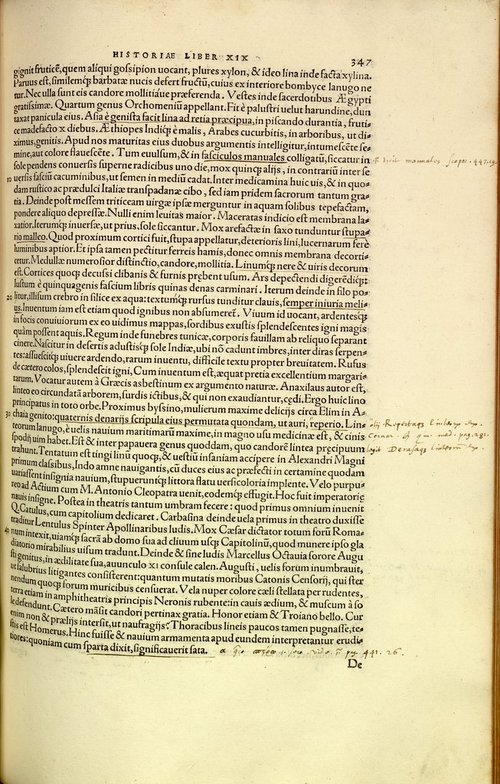 HISTORIAE LIBER XIX 347
gignit fruticē, quem aliqui gossipion uocant, plures xylon, & ideo lina inde facta xylina.
Paruus est, similemq́; barbatæ nucis defert fructū, cuius ex interiore bombyce lanugo ne-
tur. Nec ulla sunt eis candore mollitiáue præferenda. Vestes inde sacerdotibus Ægypti
gratissimæ. Quartum genus Orchomeniū appellant. Fit è palustri uelut harundine, dun
taxat panicula eius. Asia è genista facit lina ad retia præcipua, in piscando durantia, fruti-
ce madefacto x diebus. Æthiopes Indiq́; è malis, Arabes cucurbitis, in arboribus, ut di-
ximus, genitis. Apud nos maturitas eius duobus argumentis intelligitur, intumescēte se-
mine, aut colore flauescēte. Tum euulsum, & in fasciculos manuales colligatū, siccatur in
sole pendens conuersis superne radicibus uno die, mox quinq́; alijs, in contrariū inter se
10 uersis fasciū cacuminibus, ut semen in mediū cadat. Inter medicamina huic uis, & in quo-
dam rustico ac prædulci Italiæ transpadanæ cibo, sed iam pridem sacrorum tantum gra-
tia. Deinde post messem triticeam uirgæ ipsæ merguntur in aquam solibus tepefactam,
pondere aliquo depressæ. Nulli enim leuitas maior. Maceratas indicio est membrana la-
xatior. Iterumq́; inuersæ, ut prius, sole siccantur. Mox arefactæ in saxo tunduntur stupa-
rio malleo. Quod proximum cortici fuit, stupa appellatur, deterioris lini, lucernarum ferè
luminibus aptior. Et ipsa tamen pectitur ferreis hamis, donec omnis membrana decorti-
cetur. Medullæ numerosior distinctio, candore, mollitia. Linumq́; nere & uiris decorum
est. Cortices quoq́; decussi clibanis & furnis præbent usum. Ars depectendi digerēdiq́;:
iustum è quinquagenis fascium libris quinas denas carminari. Iterum deinde in filo po-
20 litur, illisum crebro in silice ex aqua: textumq́; rursus tunditur clauis, semper iniuria meli-
us. Inuentum iam est etiam quod ignibus non absumeret. Viuum id uocant, ardentesq́;
in focis conuiuiorum ex eo uidimus mappas, sordibus exustis splendescentes igni magis
quàm possent aquis. Regum inde funebres tunicæ, corporis fauillam ab reliquo separant
cinere. Nascitur in desertis adustisq́; sole Indiæ, ubi nō cadunt imbres, inter diras serpen-
tes: assuescitq́; uiuere ardendo, rarum inuentu, difficile textu propter breuitatem. Rufus
de cætero colos, splendescit igni. Cum inuentum est, æquat pretia excellentium margari-
tarum. Vocatur autem à Græcis asbestinum ex argumento naturæ. Anaxilaus autor est,
linteo eo circundatā arborem, surdis ictibus, & qui non exaudiantur, cędi. Ergo huic lino
principatus in toto orbe. Proximus byssino, mulierum maxime delicijs circa Elim in A-
30 chaia genito: quaternis denarijs scripula eius permutata quondam, ut auri, reperio. Lin-
teorum lanugo, è uelis nauium maritimarū maxime, in magno usu medicinæ est, & cinis
spodij uim habet. Est & inter papauera genus quoddam, quo candorē lintea præcipuum
trahunt. Tentatum est tingi linū quoq́;, & uestiū insaniam accipere in Alexandri Magni
primum classibus, Indo amne nauigantis, cū duces eius ac præfecti in certamine quodam
uariassent insignia nauium, stupueruntq́; littora flatu uersicoloria implente. Velo purpu-
reo ad Actium cum M. Antonio Cleopatra uenit, eodemq́; effugit. Hoc fuit imperatoriæ
nauis insigne. Postea in theatris tantum umbram fecere: quod primus omnium inuenit
Q. Catulus, cum capitolium dedicaret. Carbasina deinde uela primus in theatro duxisse
traditur Lentulus Spinter Apollinaribus ludis. Mox Cæsar dictator totum forū Roma-
40 num intexit, uiamq́; sacrā ab domo sua ad cliuum usq́; Capitolinū, quod munere ipso gla
diatorio mirabilius uisum tradunt. Deinde & sine ludis Marcellus Octauia sorore Augu
sti genitus, in ædilitate sua, auunculo XI consule calen. Augusti, uelis forum inumbrauit,
ut salubrius litigantes consisterent: quantum mutatis moribus Catonis Censorij, qui ster
nendum quoq́; forum muricibus censuerat. Vela nuper colore cæli stellata per rudentes,
terra etiam in amphitheatris principis Neronis rubent: in cauis ædium, & muscum à so
le defendunt. Cætero māsit candori pertinax gratia. Honor etiam & Troiano bello. Cur
enim non & prælijs intersit, ut naufragijs? Thoracibus lineis paucos tamen pugnasse, te-
stis est Homerus. Hinc fuisse & nauium armamenta apud eundem interpretantur erudi-
tiores: quoniam cum sparta dixit, significauerit sata.
De